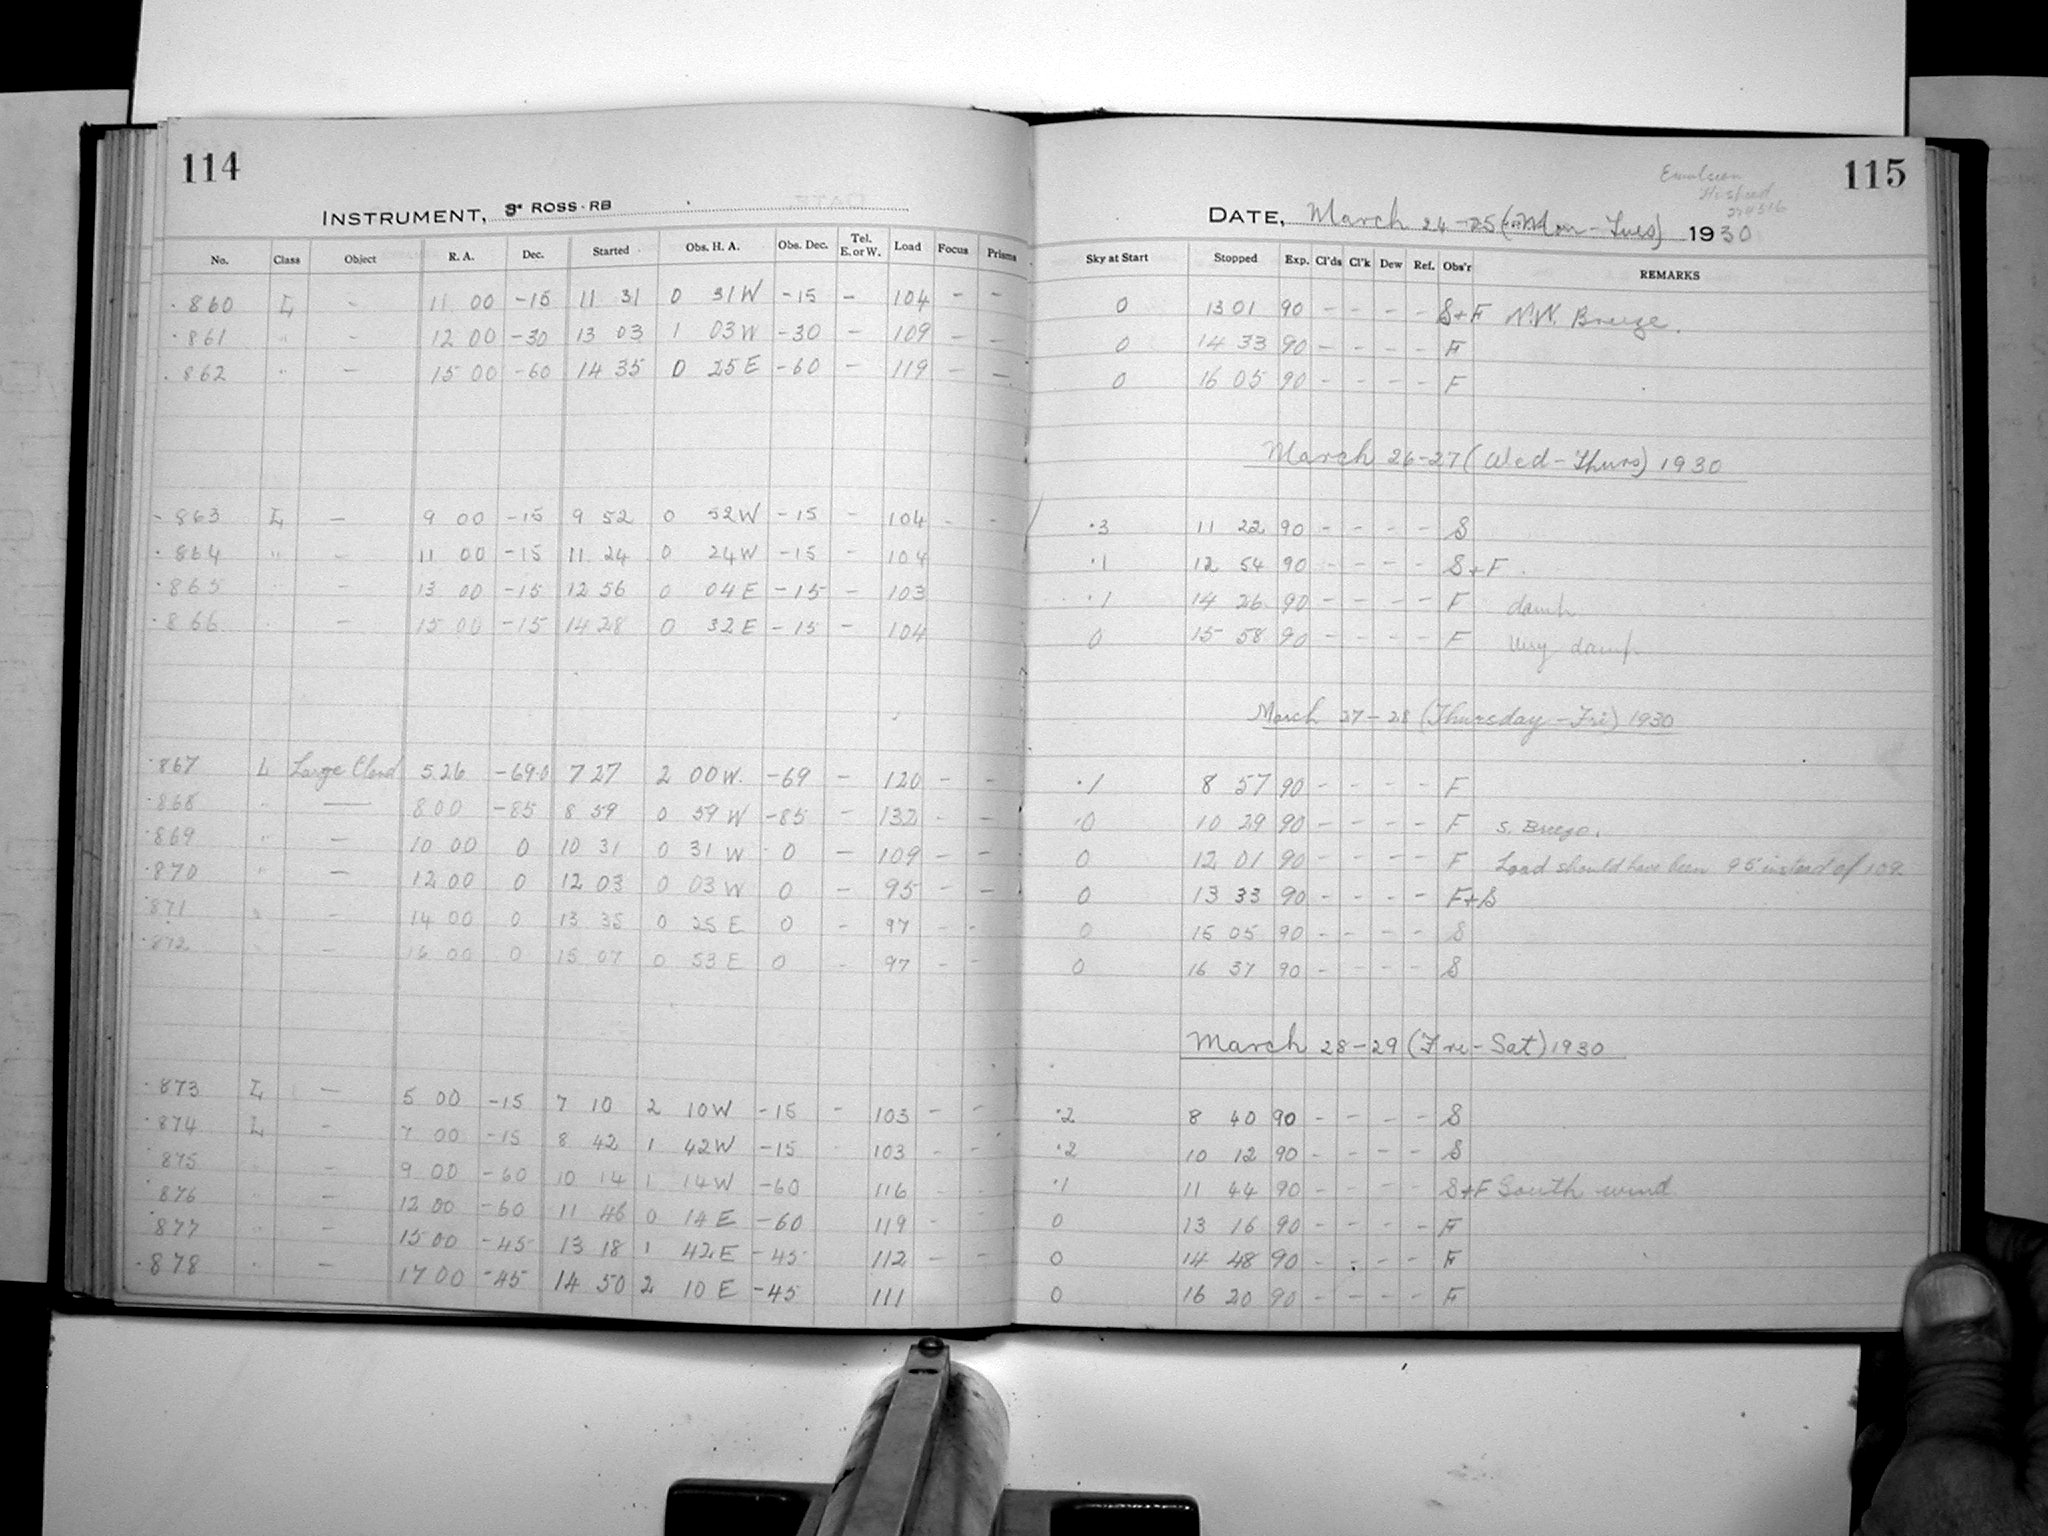 114
INSTRUMENT, 3" ROSS-RB
No. Class Object R. A. Dec. Started Obs. H. A. Obs. Dec. Tel. E. or W. Load Focus Prisms
860 L - 11 00 -15 11 31 0 31 W -15 - 104 - -
861 " - 12 00 -30 13 03 1 03 W -30 - 109 - -
862 " - 15 00 -60 14 35 0 25 E -60 - 119 - -
863 L - 9 00 -15 9 52 0 52 W -15 - 104 - -
864 " - 11 00 -15 11 24 0 24 W -15 - 104
865 " - 13 00 -15 12 56 0 04 E -15 - 103
866 - 15 00 -15 14 28 0 32 E -15 - 104
867 L Large Cloud 5 26 -69.0 7 27 2 00 W. -69 - 120 - -
868 " - 8 00 -85 8 59 0 59 W -85 - 132 - -
869 " - 10 00 0 10 31 0 31 W 0 - 109 - -
870 " - 12 00 0 12 03 0 03 W 0 - 95 - -
871 " - 14 00 0 13 35 0 25 E 0 - 97 - -
872 " - 16 00 0 15 07 0 53 E 0 - 97 - -
873 L - 5 00 -15 7 10 2 10 W -15 - 103 - -
874 L - 7 00 -15 8 42 1 42 W -15 103 - -
875 - 9 00 -60 10 14 1 14 W -60 116 - -
876 " - 12 00 -60 11 46 0 14 E -60 119 - -
877 " - 15 00 -45 13 18 1 42 E -45 112 - -
878 " - 17 00 -45 14 50 2 10 E -45 111
115
Emulsion
Hi Speed
DATE, March 24-25 (Mon-Tues) 1930
Sky at Start Stopped Exp. Cl'ds Cl'k Dew Ref. Obs'r REMARKS
0 13 01 90 - - - - S+F N.W. Breeze.
0 14 33 90 - - - - F
0 16 05 90 - - - - F
March 26-27 (Wed-Thurs) 1930
.3 11 22 90 - - - - S
.1 12 54 90 - - - - S+F
.1 14 26 90 - - - - F damp
0 15 58 90 - - - - F Very damp
March 27-28 (Thursday-Fri) 1930
.1 8 57 90 - - - - F
.0 10 29 90 - - - - F S. Breeze.
0 12 01 90 - - - - F Load should have been 95 instead of 109
0 13 33 90 - - - - F+S
0 15 05 90 - - - - S
0 16 37 90 - - - - S
March 28-29 (Fri-Sat) 1930
.2 8 40 90 - - - - S
.2 10 12 90 - - - - S
.1 11 44 90 - - - - S+F South wind
0 13 16 90 - - - - F
0 14 48 90 - - - - F
0 16 20 90 - - - - F